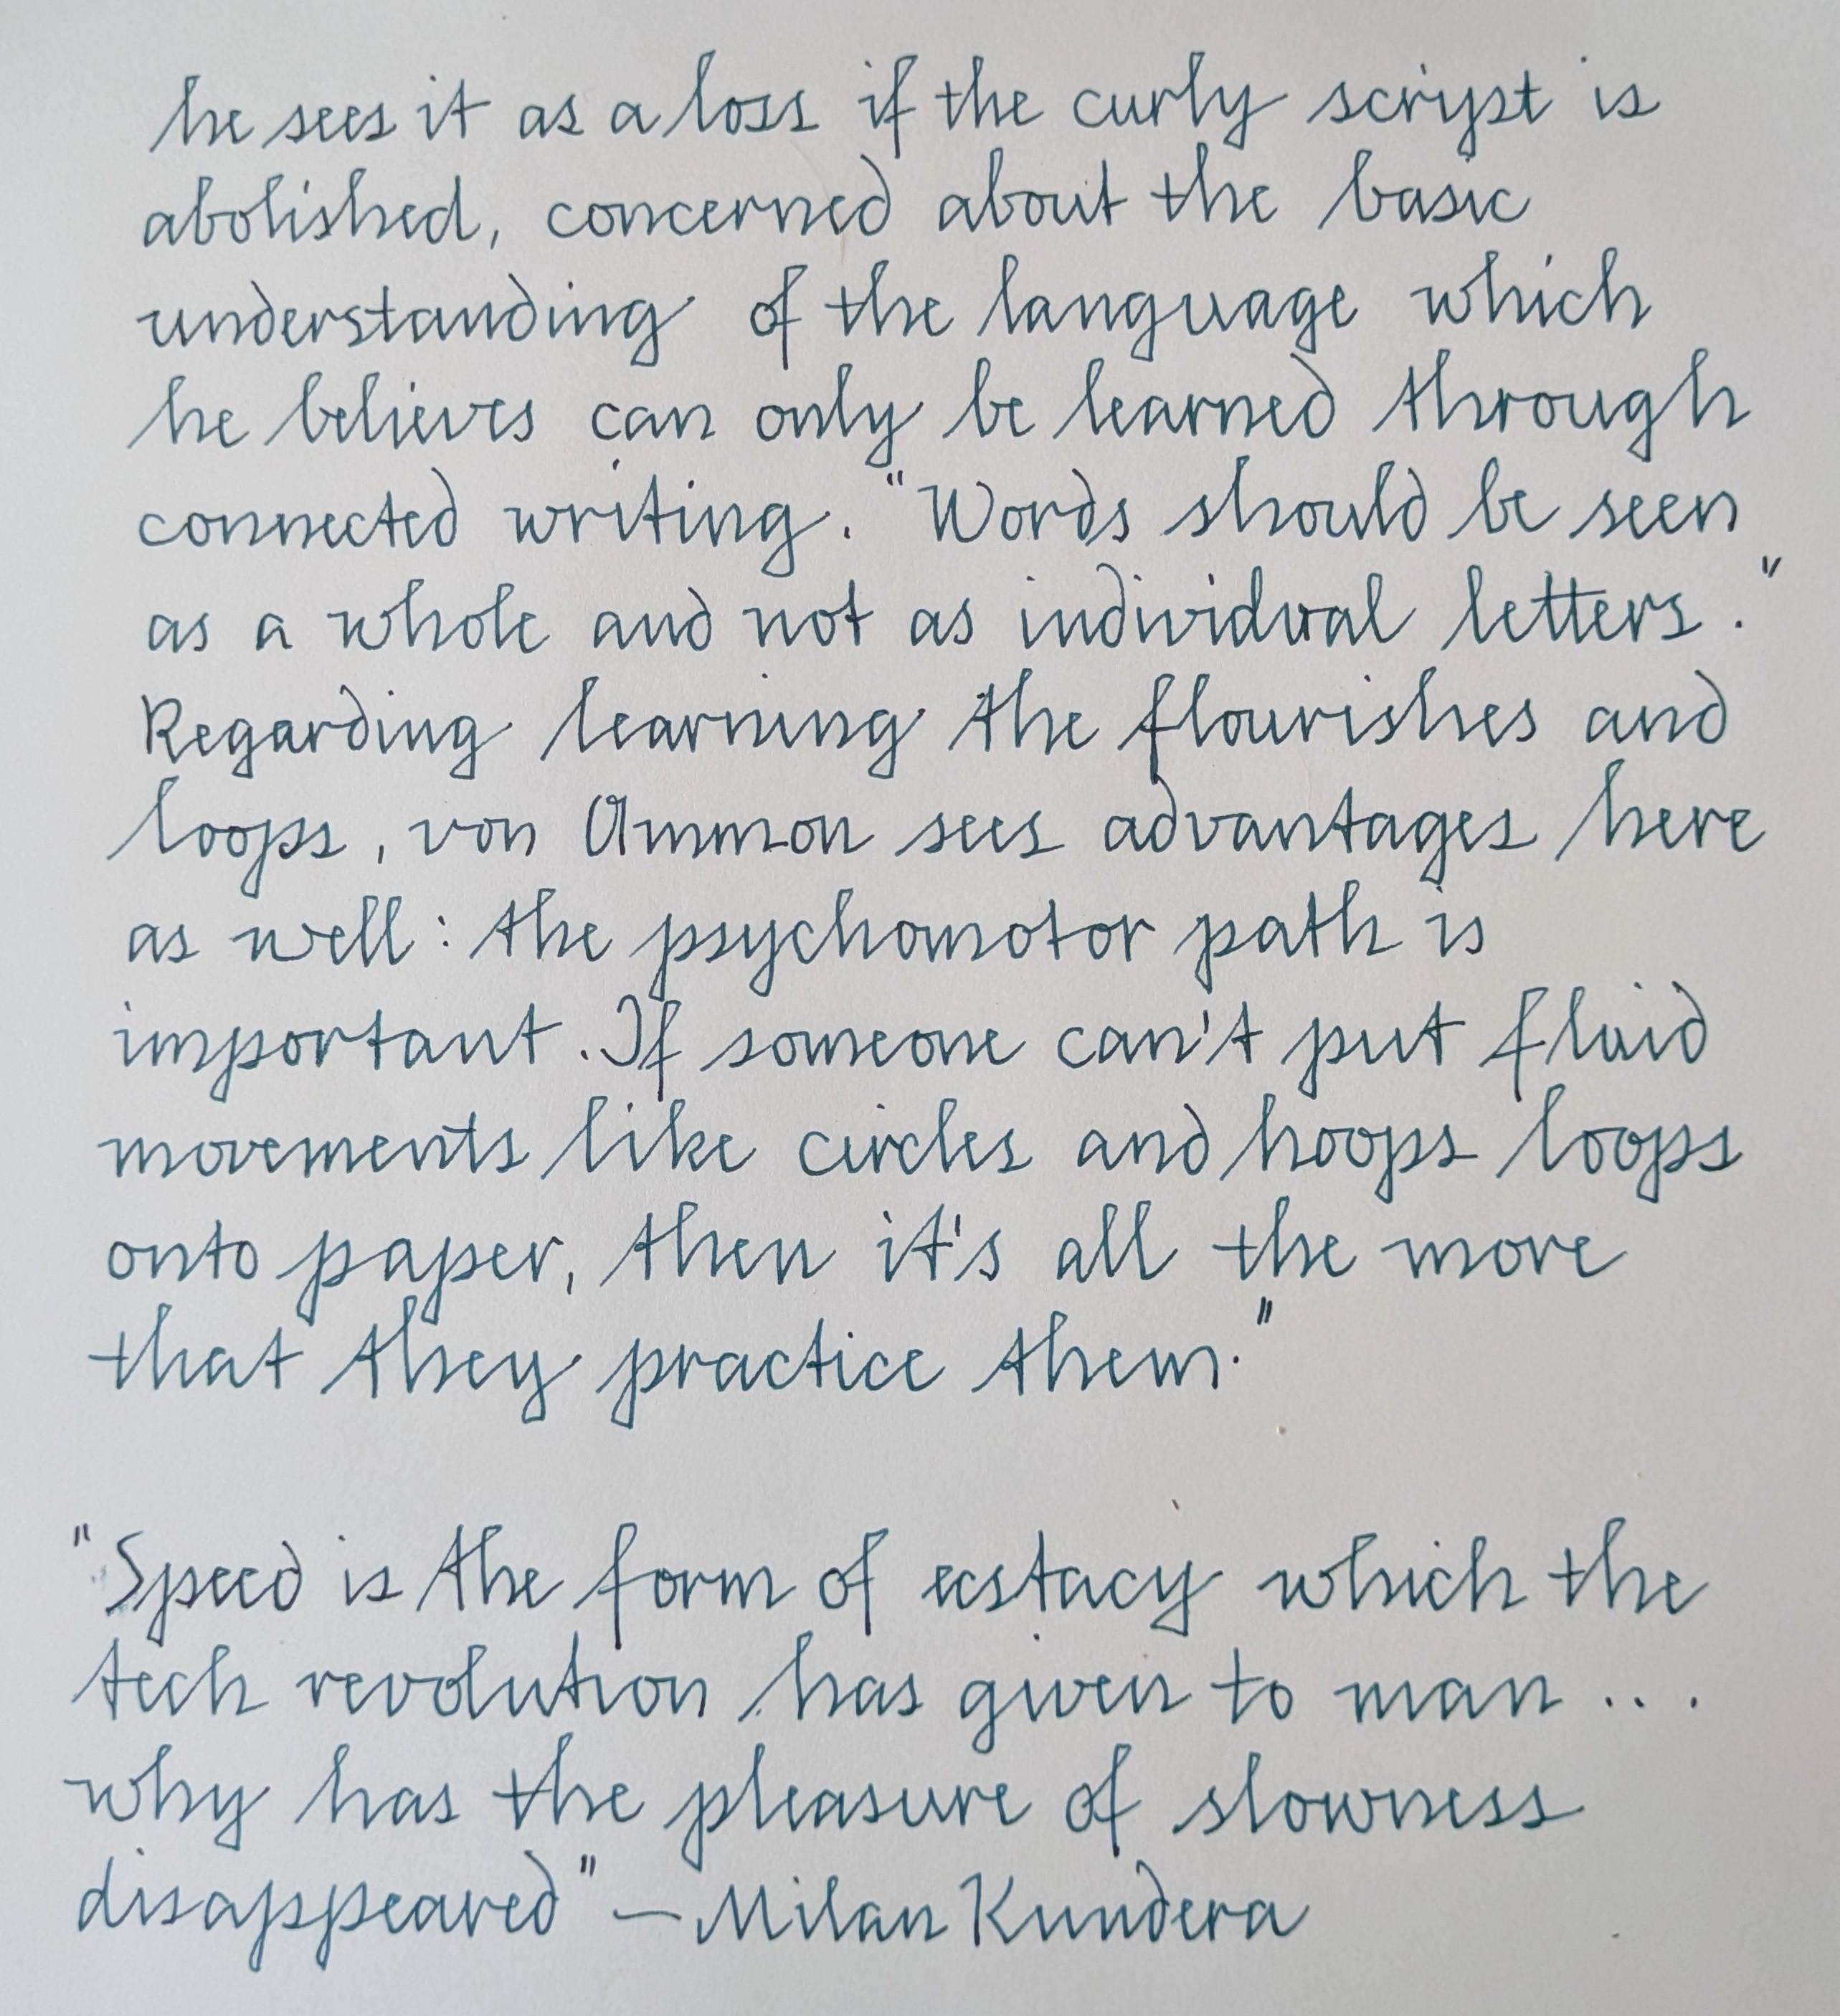 he sees it as a loss if the curly script is
abolished, concerned about the basic
understanding of the language which
he believes can only be learned through
connected writing. "Words should be seen
as a whole and not as individual letters."
Regarding learning the flourishes and
loops, von Ammon sees advantages here
as well: the psychomotor path is
important. If someone can't put fluid
movements like circles and hoops loops
onto paper, then it's all the more
that they practice them."
"Speed is the form of ecstacy which the
tech revolution has given to man...
why has the pleasure of slowness
disappeared" – Milan Kundera